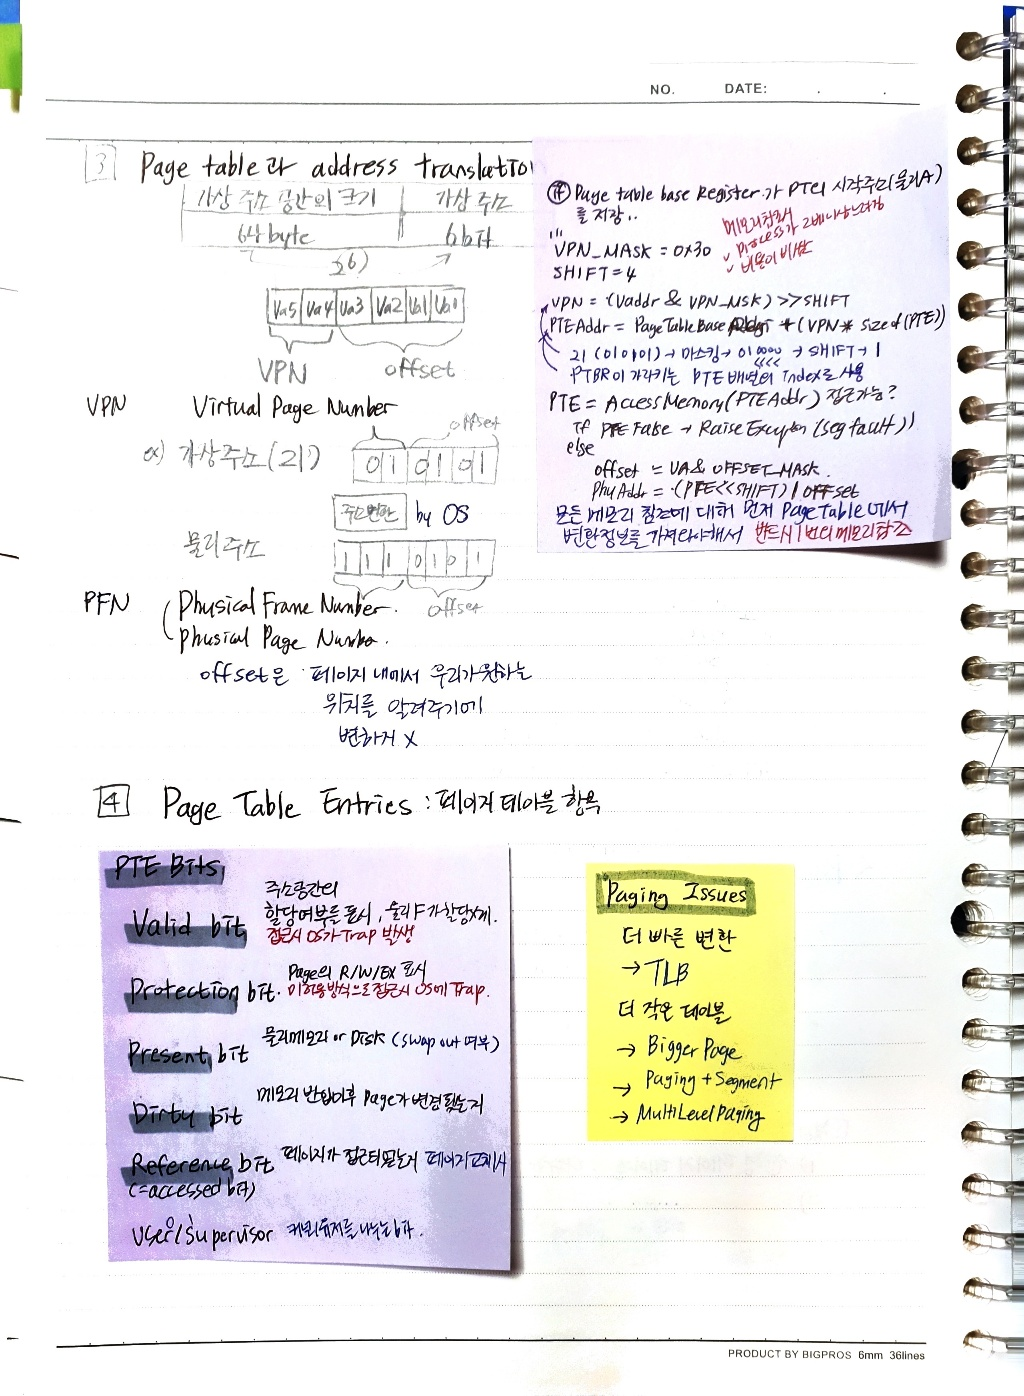 NO. DATE: . .
3 Page table과 address translation
가상 주소 공간의 크기 가상 주소
64 byte 6 bit
2^6)
Va5 Va4 Va3 Va2 Va1 Va0
VPN offset
VPN Virtual Page Number
offset
ex) 가상주소(21) 0 1 0 1 0 1
주소변환 by OS
물리주소 1 1 1 0 1 0 1
PFN Physical Frame Number. offset
Physical Page Number.
offset은 페이지 내에서 우리가 원하는
위치를 알려주기에
변하지 X
Page table base Register가 PTE의 시작주소(물리A)
를 저장..
메모리참조시
Process가 2배이상느려짐
비용이 비쌈
VPN_MASK = 0x30
SHIFT = 4
VPN = (Vaddr & VPN_MSK) >> SHIFT
PTEAddr = PageTableBase + (VPN * size of (PTE))
21 (010101) → 마스킹 → 010000 → SHIFT → 1
<<<<
PTBR이 가리키는 PTE 배열의 Index로 사용
PTE = AccessMemory(PTEAddr) 접근가능?
If PTE False → Raise Exception (seg fault))
else
offset = VA & OFFSET_MASK.
PhyAddr = (PTE << SHIFT) | OFFSET
모든 메모리 참조에 대해 먼저 Page Table에서
변환정보를 가져와야해서 반드시 1번의 메모리참조
4 Page Table Entries : 페이지 테이블 항목
PTE Bits
주소공간의
Valid bit 할당여부를 표시, 물리F가 할당X시.
접근시 OS가 Trap 발생
Page의 R/W/EX 표시
Protection bit. 미허용방식으로 접근시 OS에 Trap.
Present bit 물리메모리 or Disk (swap out 여부)
Dirty bit 메모리 반입이후 Page가 변경됐는지
Reference bit 페이지가 접근되었는지 페이지교체시
(=accessed bit)
User/Supervisor 커널유저를 나누는 bit.
Paging Issues
더 빠른 변환
→ TLB
더 작은 테이블
→ Bigger Page
→ Paging + Segment
→ MultiLevel Paging
PRODUCT BY BIGPROS 6mm 36lines